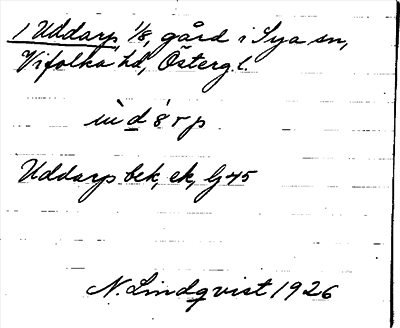 1 Uddarp, 1/8, gård i Sya sn,
Vifolka hd, Österg l.
Uddarp bek, ek, lj 45
N. Lindqvist 1926